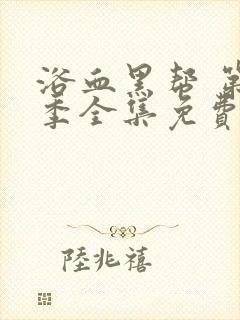 浴血黑帮 第
季全集免費
陸兆禧